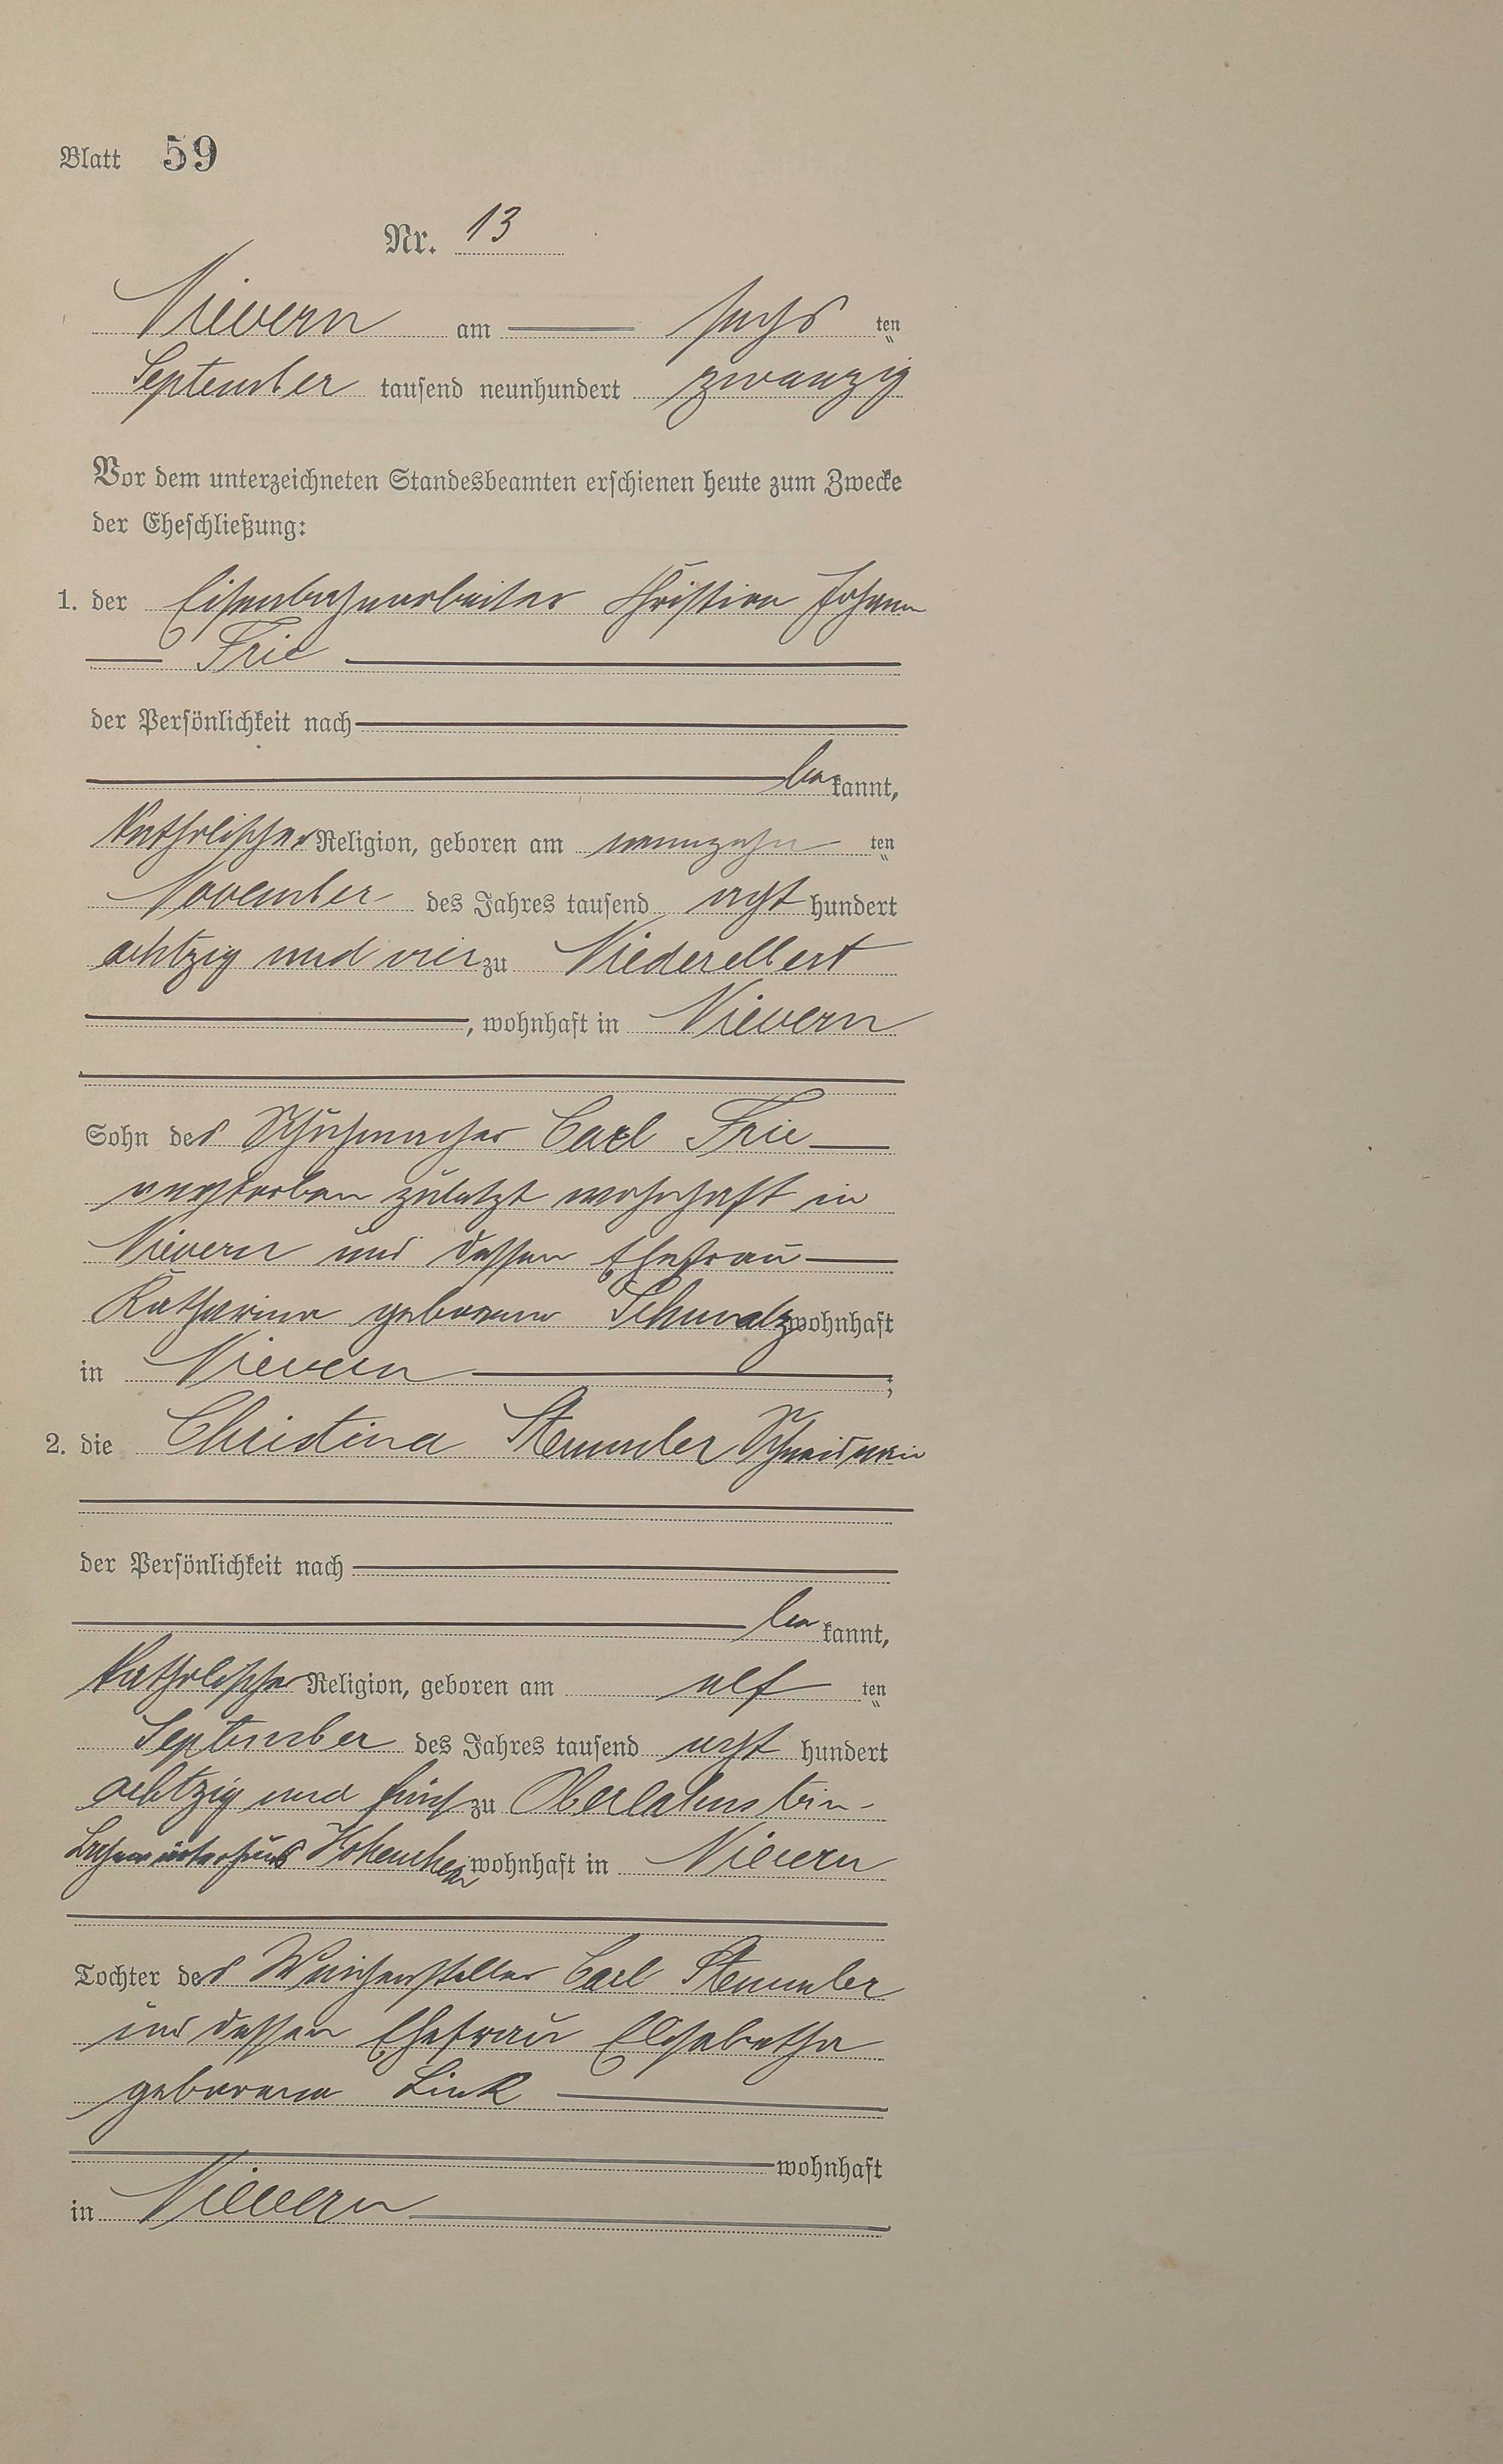 Blatt 59
Nr. 13
Nievern am sechs ten
September tausend neunhundert zwanzig
Vor dem unterzeichneten Standesbeamten erschienen heute zum Zwecke
der Eheschließung:
1. der Eisenbahnarbeiter Christian Johann
Frie
der Persönlichkeit nach
be kannt,
katholischer Religion, geboren am neunzehn ten
November des Jahres tausend acht hundert
achtzig und vier zu Niederelbert
, wohnhaft in Nievern
Sohn des Schuhmacher Carl Frie
verstorben zuletzt wohnhaft in
Nievern und dessen Ehefrau
Katharina geborene Schmalz wohnhaft
in Nievern ;
2. die Christina Stemmler
der Persönlichkeit nach
be kannt,
katholischer Religion, geboren am elf ten
September des Jahres tausend acht hundert
achtzig und fünf zu Oberlahnstein-
wohnhaft in Nievern
Tochter des Weichensteller Carl Stemmler
und dessen Ehefrau Elisabetha
geborene Link
wohnhaft
in Nievern